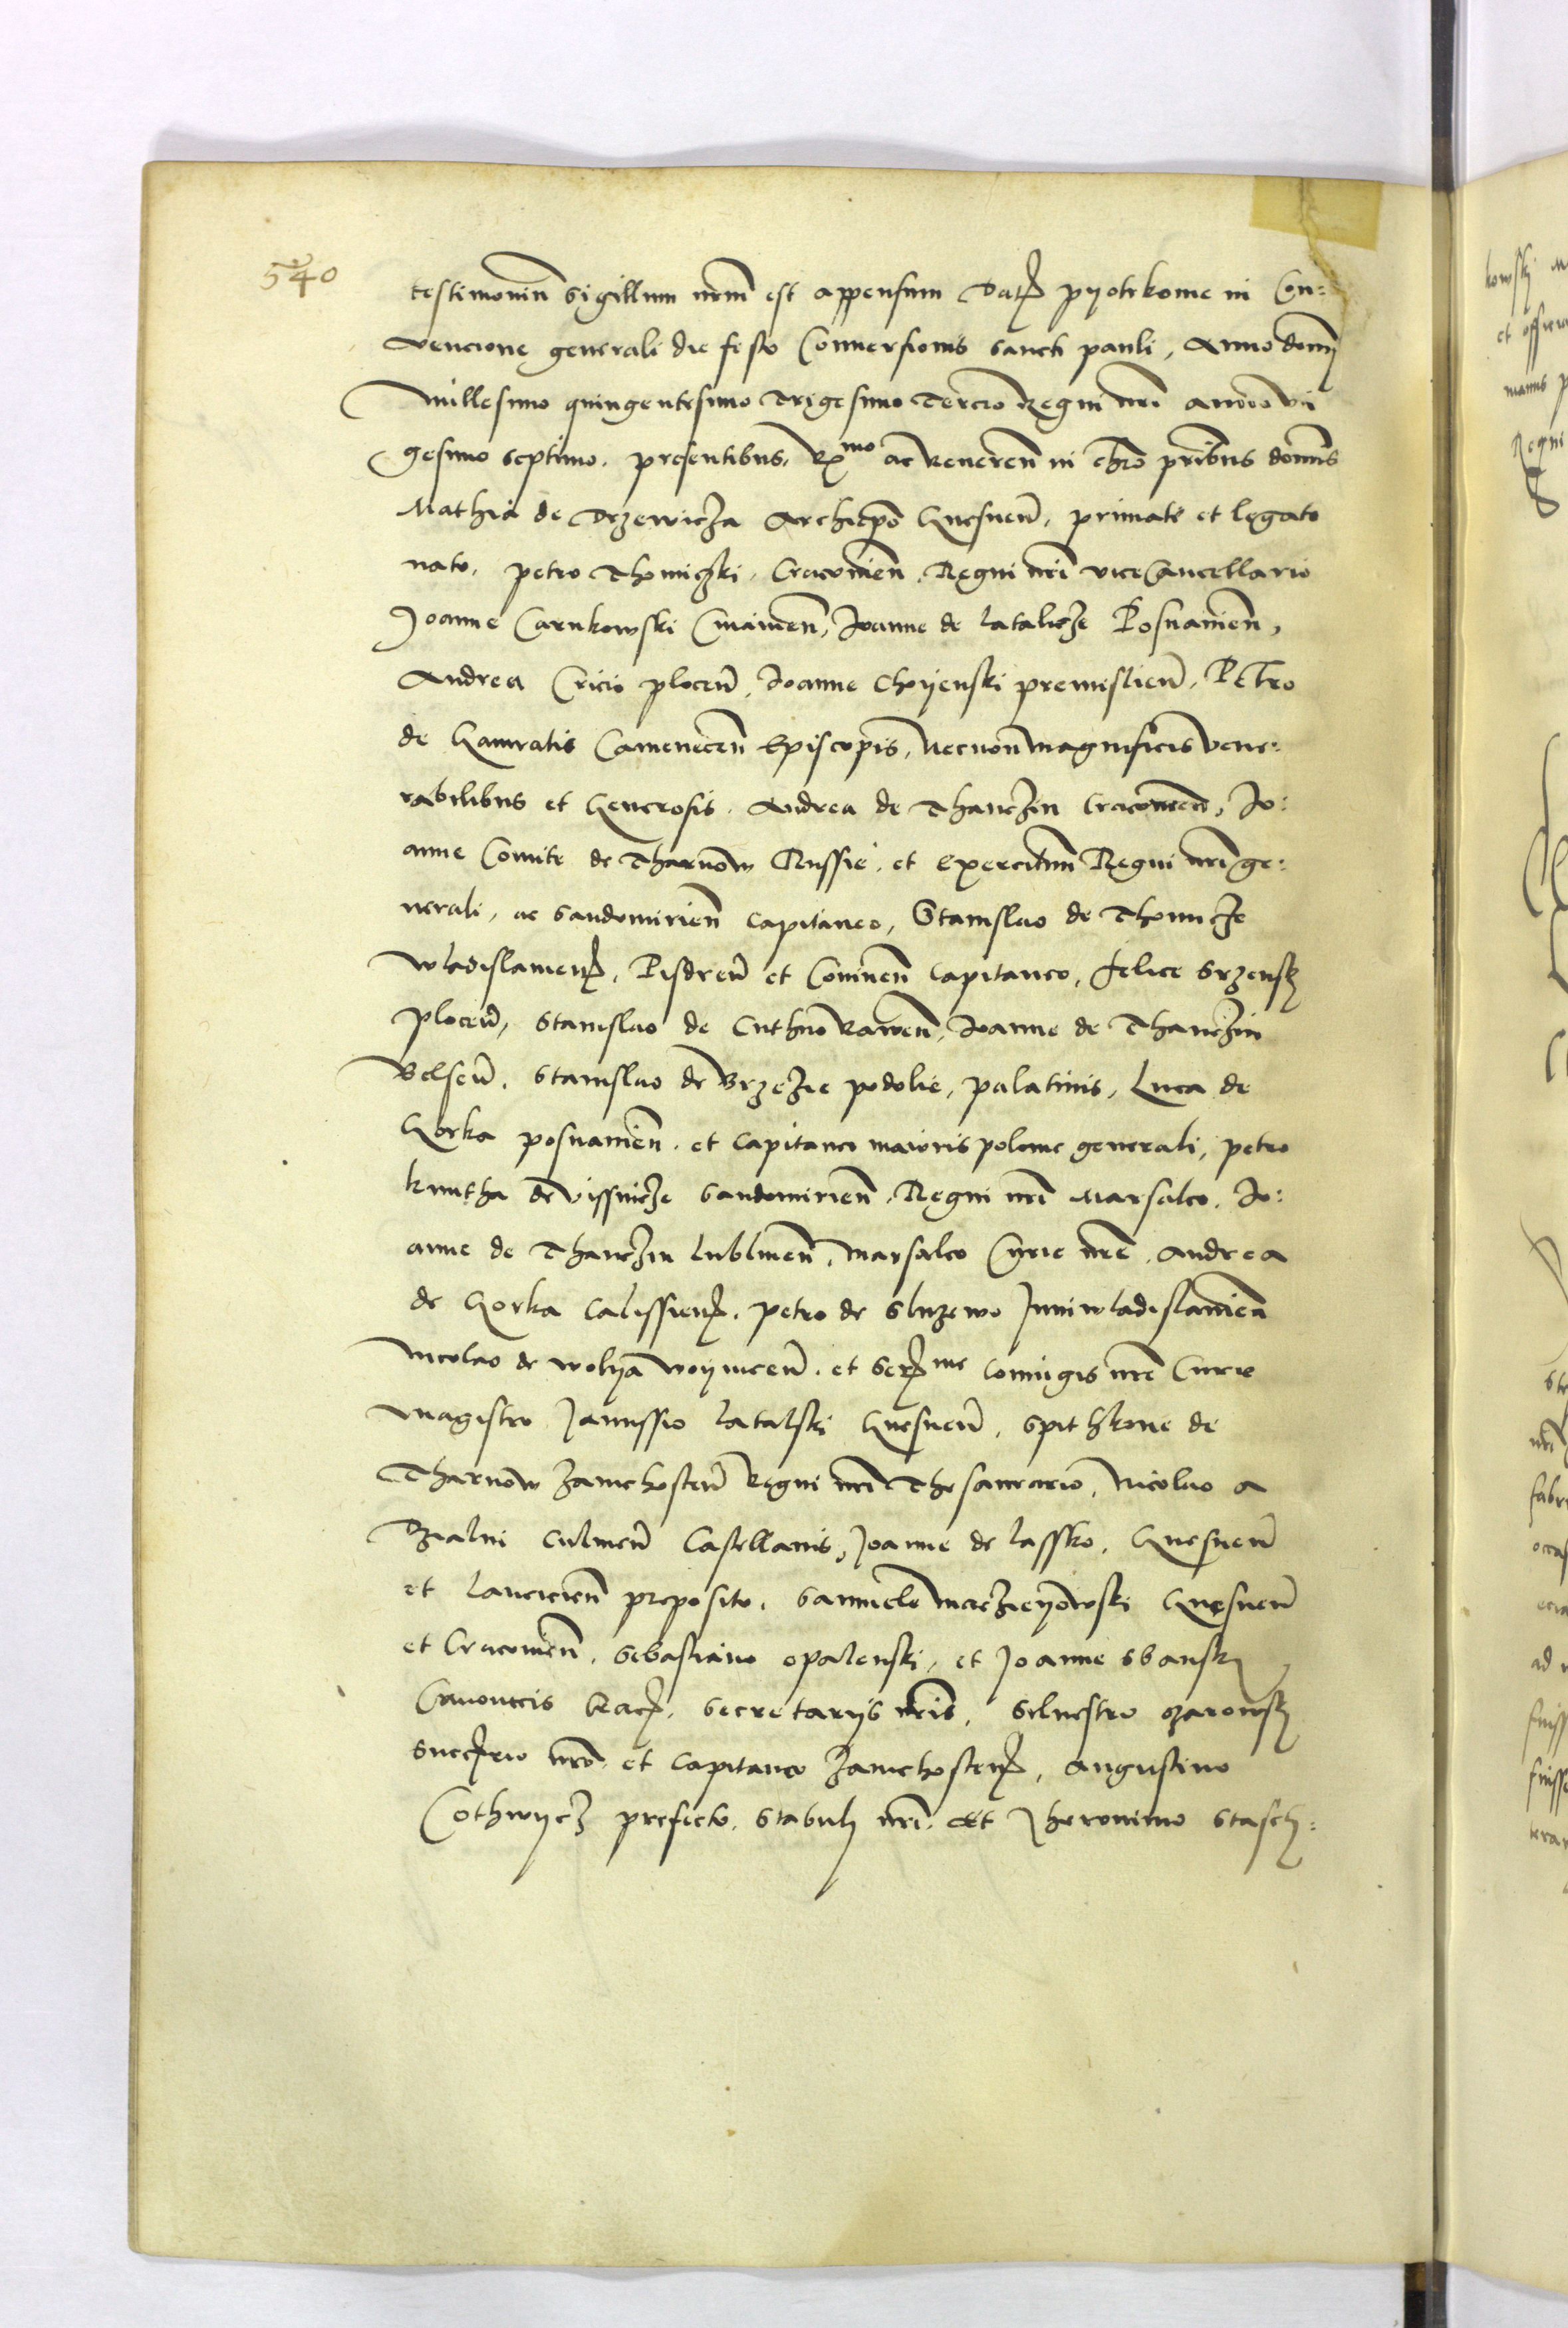 540
testimonium sigillum nrm est appensum Dat pyotrkowie in Con:
vencione generali die festo Conversionis sancti pauli, Anno domini
Millesimo quingentesimo Trigesimo Tercio Regni nri anno vi
gesimo septimo. presentibus, Rmo ac veneren in chro pribus domnis
Mathia de Drzewicza Archiepo Gnesnen, primate et legato
nato, petro Thomiczki, Cracovien, Regni nri vice Cancellario
Joanne Carnkowski Cuiavien, Joanne de Latalicze Posnanien,
Andrea Cricio plocen, Joanne Choyenski premislien, Petro
de Gamratis Camenecen Episcopis, Necnon magnificis vene:
rabilibus et Generosis. Andrea de Thanczin Cracovien, Jo:
anne Comite de Tharnow Russie, et Exercituum Regni nri ge:
nerali, ac Sandomirien Capitaneo, Stanislao de Thomicze
Wladislavien, Pisdren et Coninen Capitaneo, Felice Srzensky
plocen, Stanislao de Cuthno Raven, Joanne de Thanczin
Belsen, Stanislao de Brzezie podolie, palatinis, Luca de
Gorka posnanien. et Capitaneo maioris polonie generali, petro
kmitha de Vissnicze Sandomirien, Regni nri Marsalco, Jo:
anne de Thanczin Lublinen, Marsalco Curie nre, Andrea
de Gorka Calissien, petro de Sluzewo Juniwladislavien
Nicolao de wolya woynicen, et Serme coniugis nre Curie
magistro Janussio Latalski Gnesnen, Spithkone de
Tharnow Zawichosten Regni nri Thesaurario, Nicolao a
Dzialni Culmen Castellanis, Joanne de Lassko, Gnesnen
et Lancicien preposito, Samuele Macziejowski Gnesnen
et Cracovien, Sebastiano opalenski, et Joanne Sbansky
Canonicis Secretarijs nris, Silvestro ozarowsky
nro et Capitaneo Zawichosten, Augustino
Cothwycz prefecto Stabuli nri. et Jheronimo Stasch: